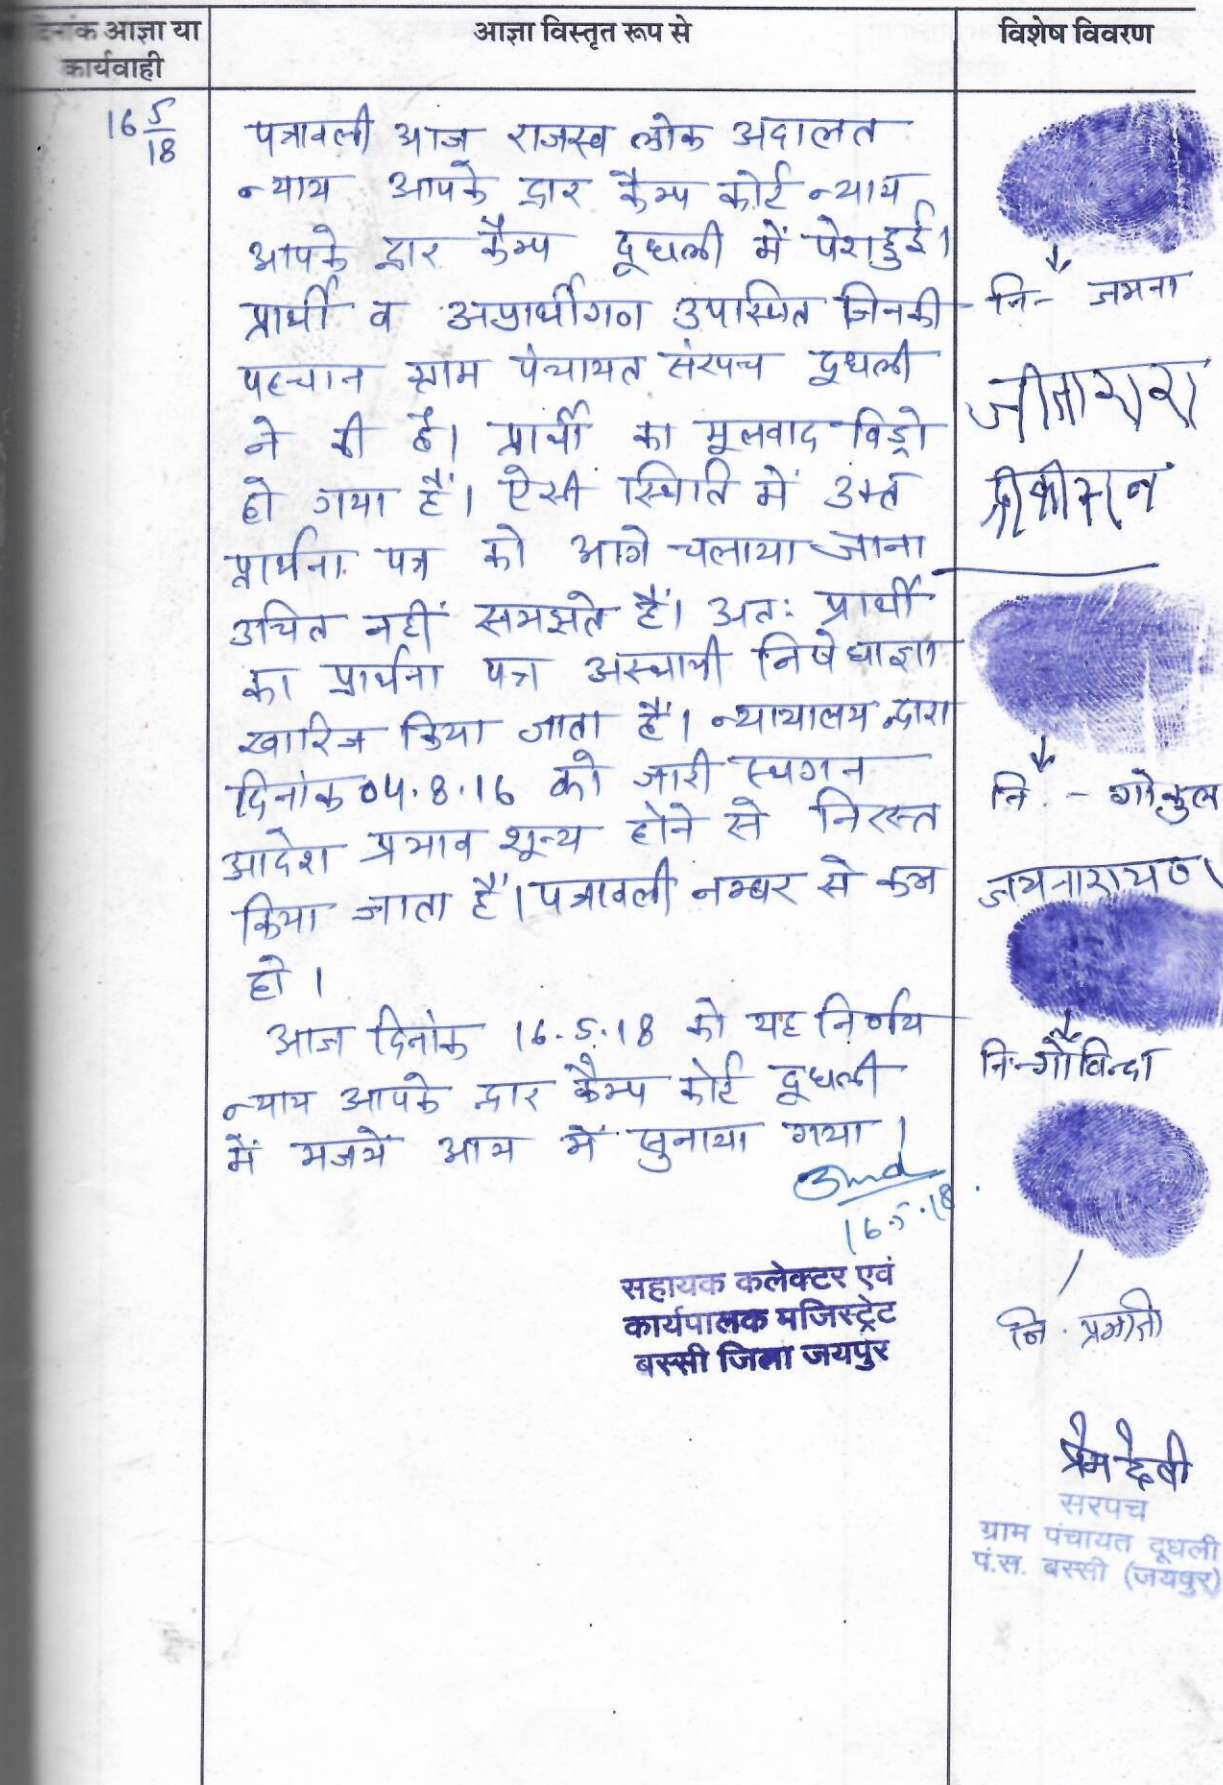 दिनांक आज्ञा या
कार्यवाही
आज्ञा विस्तृत रूप से
विशेष विवरण
16 5/18
पत्रावली आज राजस्व लोक अदालत
न्याय आपके द्वार कैम्प कोर्ट न्याय
आपके द्वार कैम्प दूधली में पेश हुई।
प्रार्थी व अप्रार्थीगण उपास्थित जिनकी
पहचान ग्राम पंचायत संरपच दूधली
ने की है। प्रार्थी का मूलवाद विड्रो
हो गया हैं। ऐसी स्थिति में उक्त
प्रार्थना पत्र को आगे चलाया जाना
उचित नहीं समझते हैं। अतः प्रार्थी
का प्रार्थना पत्र अस्थायी निषेधाज्ञा
खारिज किया जाता हैं। न्यायालय द्वारा
दिनांक 04.8.16 को जारी स्थगन
आदेश प्रभाव शून्य होने से निरस्त
किया जाता हैं। पत्रावली नम्बर से कम
हो।
आज दिनांक 16.5.18 को यह निर्णय
न्याय आपके द्वार कैम्प कोर्ट दूधली
में मजमें आम में सुनाया गया।
16.5.18
सहायक कलेक्टर एवं
कार्यपालक मजिस्ट्रेट
बस्सी जिला जयपुर
नि- जमना
जीताराम
नि. - गोकुल
जयनारायण
नि-गोविन्दा
नि. प्रभाती
प्रेम देवी
सरपच
ग्राम पंचायत दूधली
पं.स. बस्सी (जयपुर)